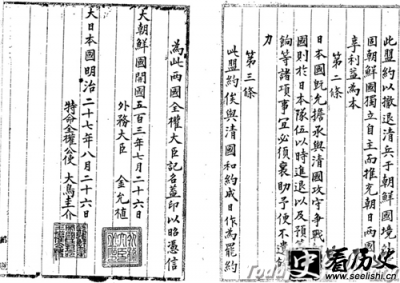 此盟約以撤退清兵于朝鮮國境外
固朝鮮國獨立自主而推充朝日兩國
享利益為本
第二條
日本國既允擔承與清國攻守爭戰
國則於日本隊伍以時進退以及預
餉等諸項事宜必須襄助予便不遺
力
第三條
此盟約俟與清國和約成日作為罷約
為此兩國全權大臣記名蓋印以昭憑信
大朝鮮國開國五百三年七月二十六日
外務大臣 金允植
大日本國明治二十七年八月二十六日
特命全權公使 大鳥圭介
看历史
www.seelishi.cn